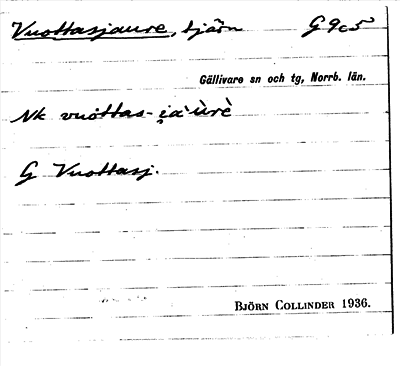 Vuottasjaure, tjärn G9c5
Gällivare sn och tg, Norrb. län.
Nk vuottas-i̯a'ùrè
G Vuottasj.
BJÖRN COLLINDER 1936.